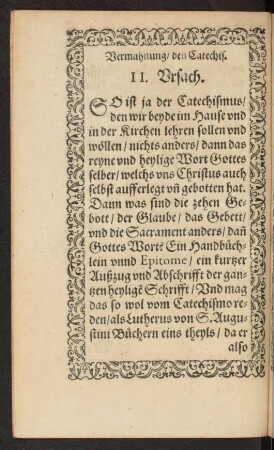 Vermahnung/ den Catechis.
II. Vrsach.
SO ist ja der Catechismus/
den wir beyde im Hause vnd
in der Kirchen lehren sollen vnd
wöllen/ nichts anders/ dann das
reyne vnd heylige Wort Gottes
selber/ welchs vns Christus auch
selbst aufferlegt vñ gebotten hat.
Dann was sind die zehen Ge-
bott/ der Glaube/ das Gebett/
vnd die Sacrament anders/ dañ
Gottes Wort? Ein Handbüch-
lein vnnd Epitome/ ein kurtzer
Außzug vnd Abschrifft der gan-
tzen heylige Schrifft/ Vnd mag
das so wol vom Catechismo re-
den/ als Lutherus von S. Augu-
stini Büchern eins theyls/ da er
also